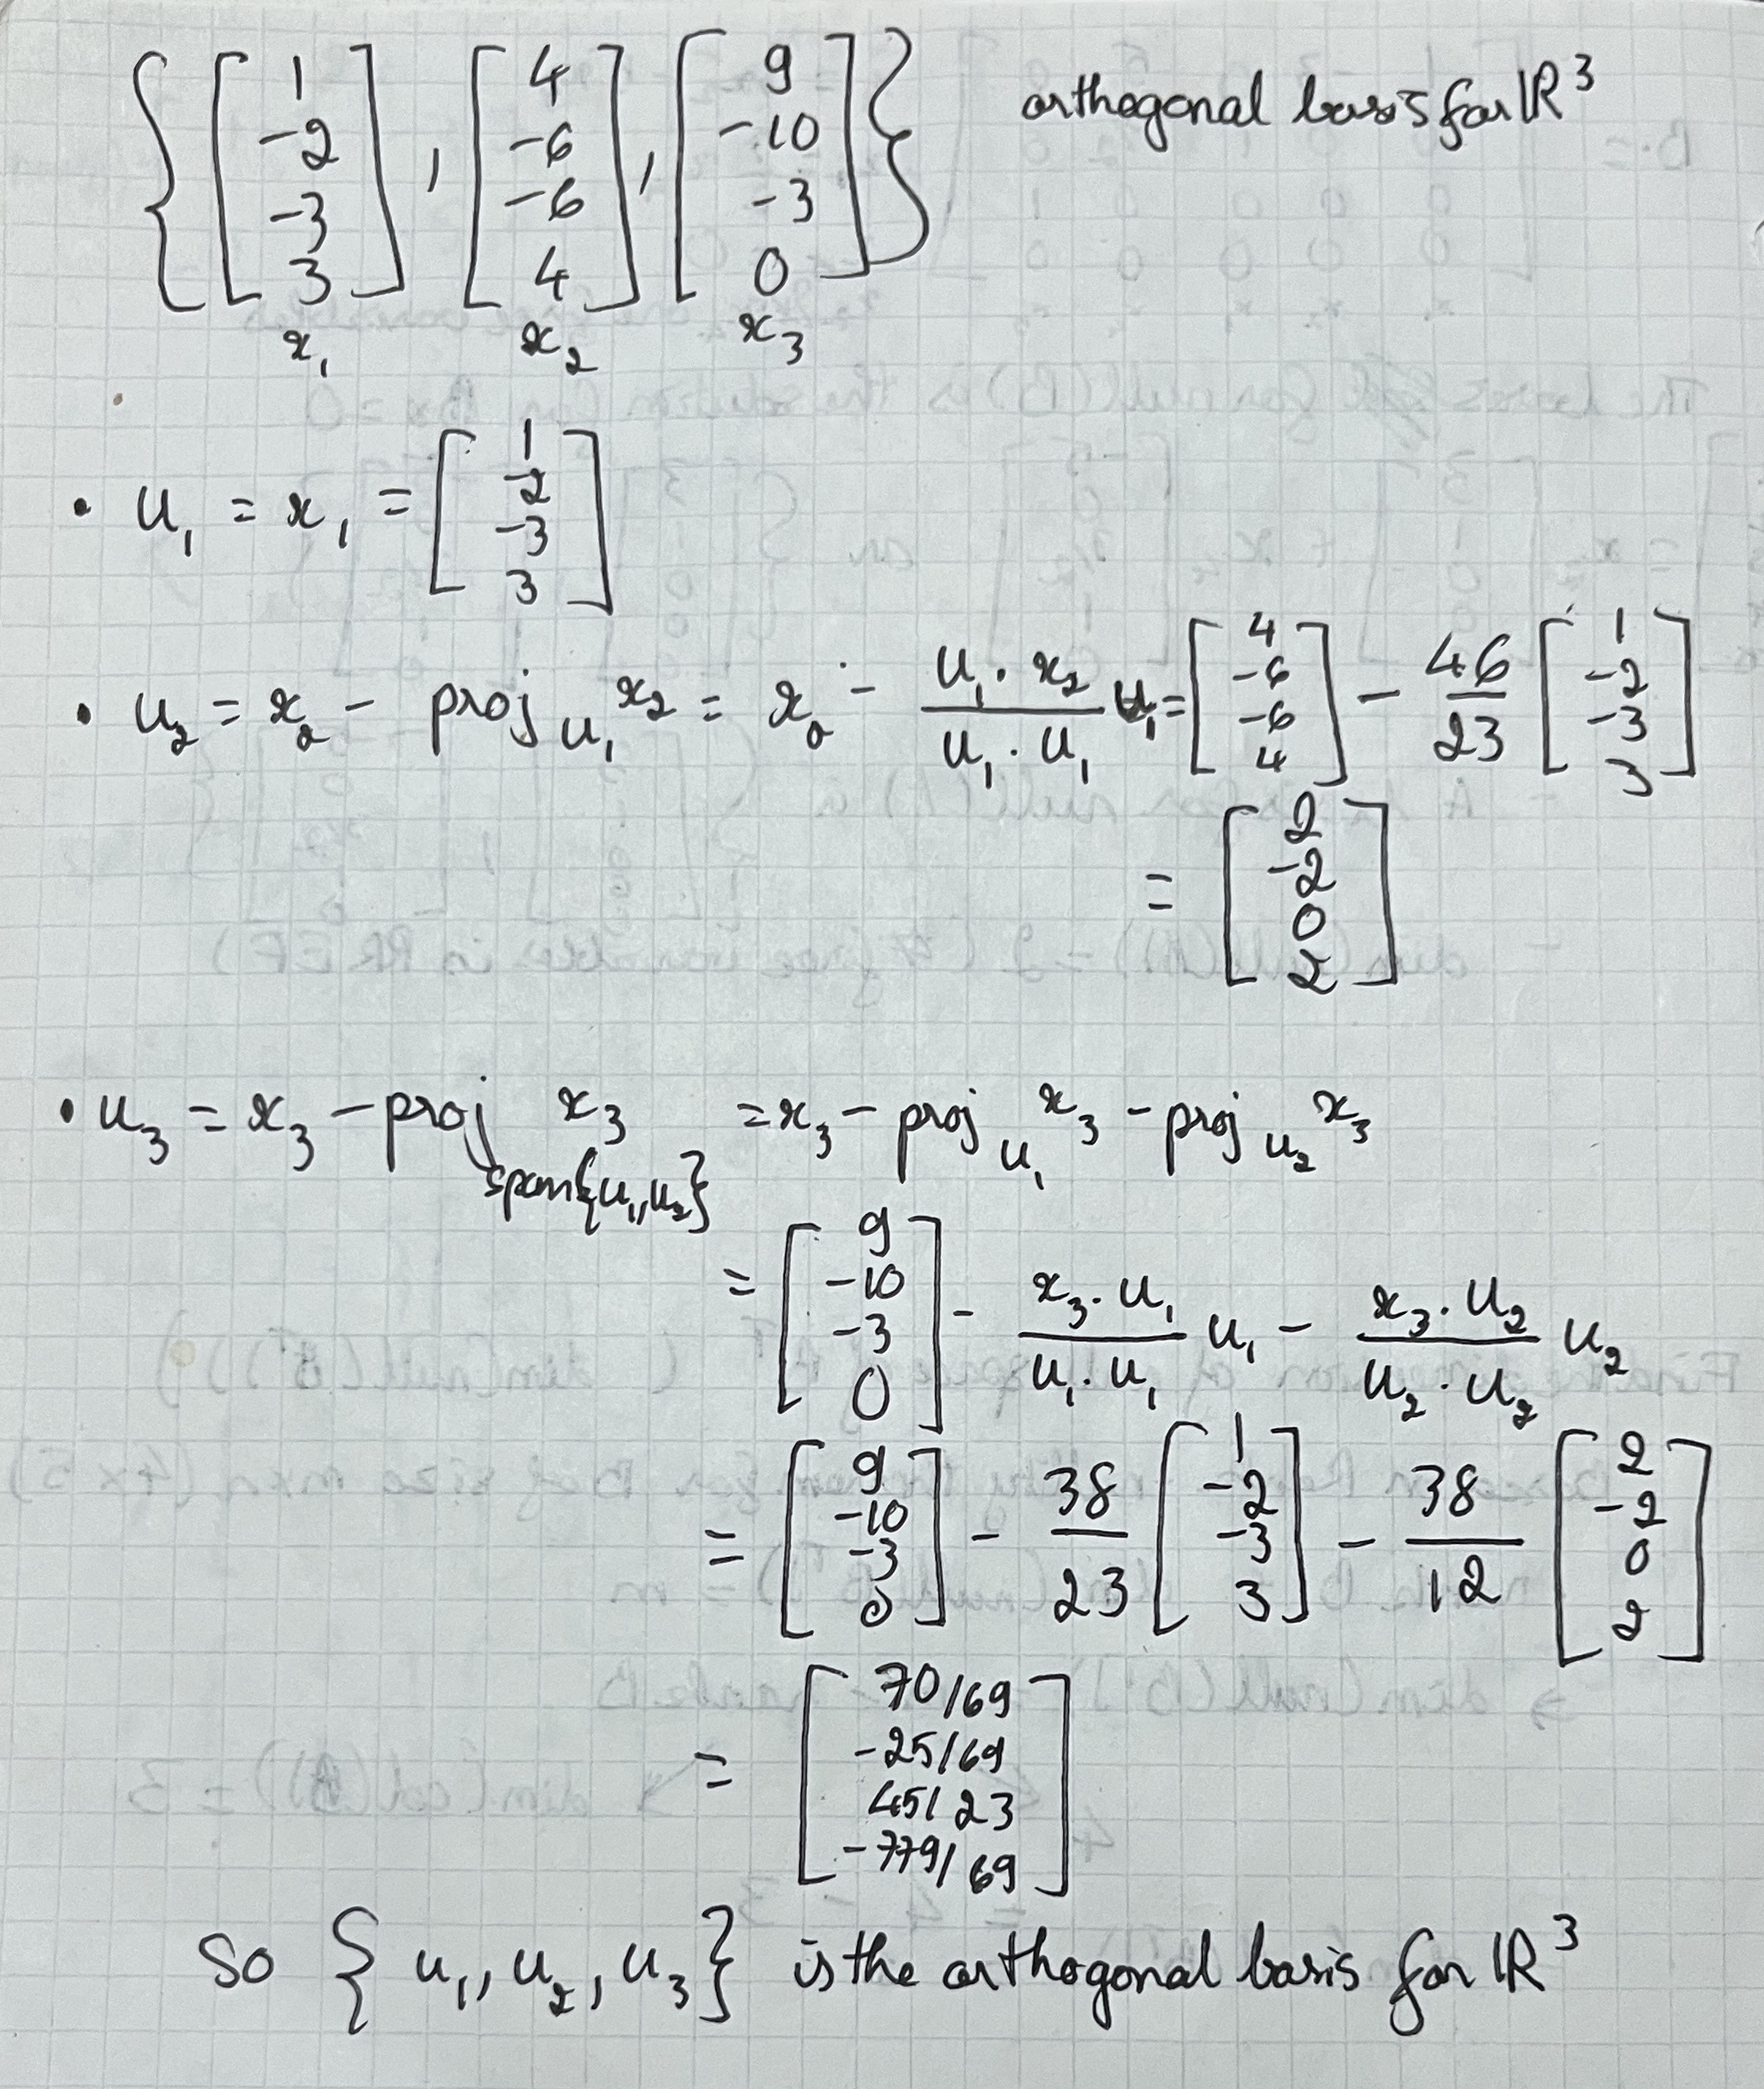 { [1 -2 -3 3], [4 -6 -6 4], [9 -10 -3 0] } orthogonal basis for ℝ³
x₁ x₂ x₃
• u₁ = x₁ = [1 -2 -3 3]
• u₂ = x₂ - proj_u₁ x₂ = x₂ - (u₁ · x₂)/(u₁ · u₁) u₁ = [4 -6 -6 4] - 46/23 [1 -2 -3 3]
= [2 -2 0 2]
• u₃ = x₃ - proj_span{u₁,u₂} x₃ = x₃ - proj_u₁ x₃ - proj_u₂ x₃
= [9 -10 -3 0] - (x₃ · u₁)/(u₁ · u₁) u₁ - (x₃ · u₂)/(u₂ · u₂) u₂
= [9 -10 -3 0] - 38/23 [1 -2 -3 3] - 38/12 [2 -2 0 2]
= [70/69 -25/69 45/23 -779/69]
So { u₁, u₂, u₃ } is the orthogonal basis for ℝ³